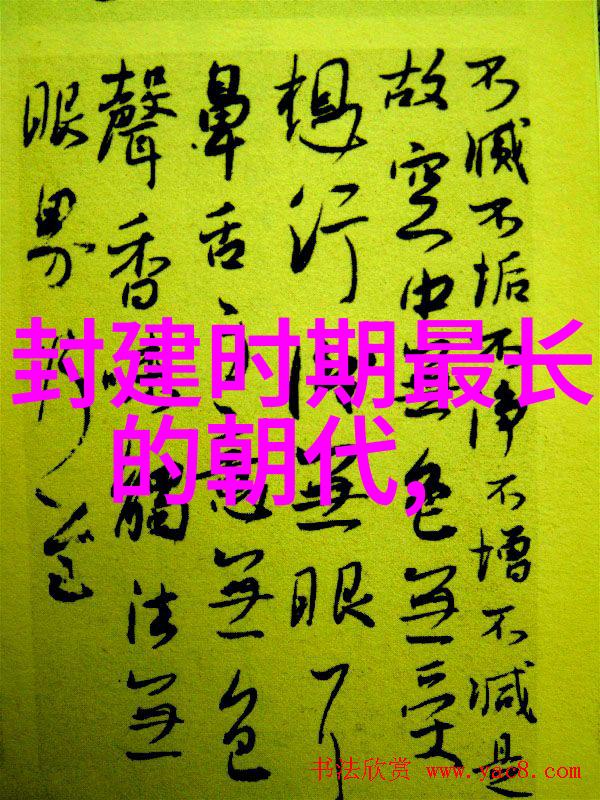 不滅不垢不淨不增不減是
故空中無色無受
想行識無眼耳
鼻舌身意無色
聲香味觸法無
眼界乃
封建时期最长
的朝代,
书法欣赏 www.yac8.com